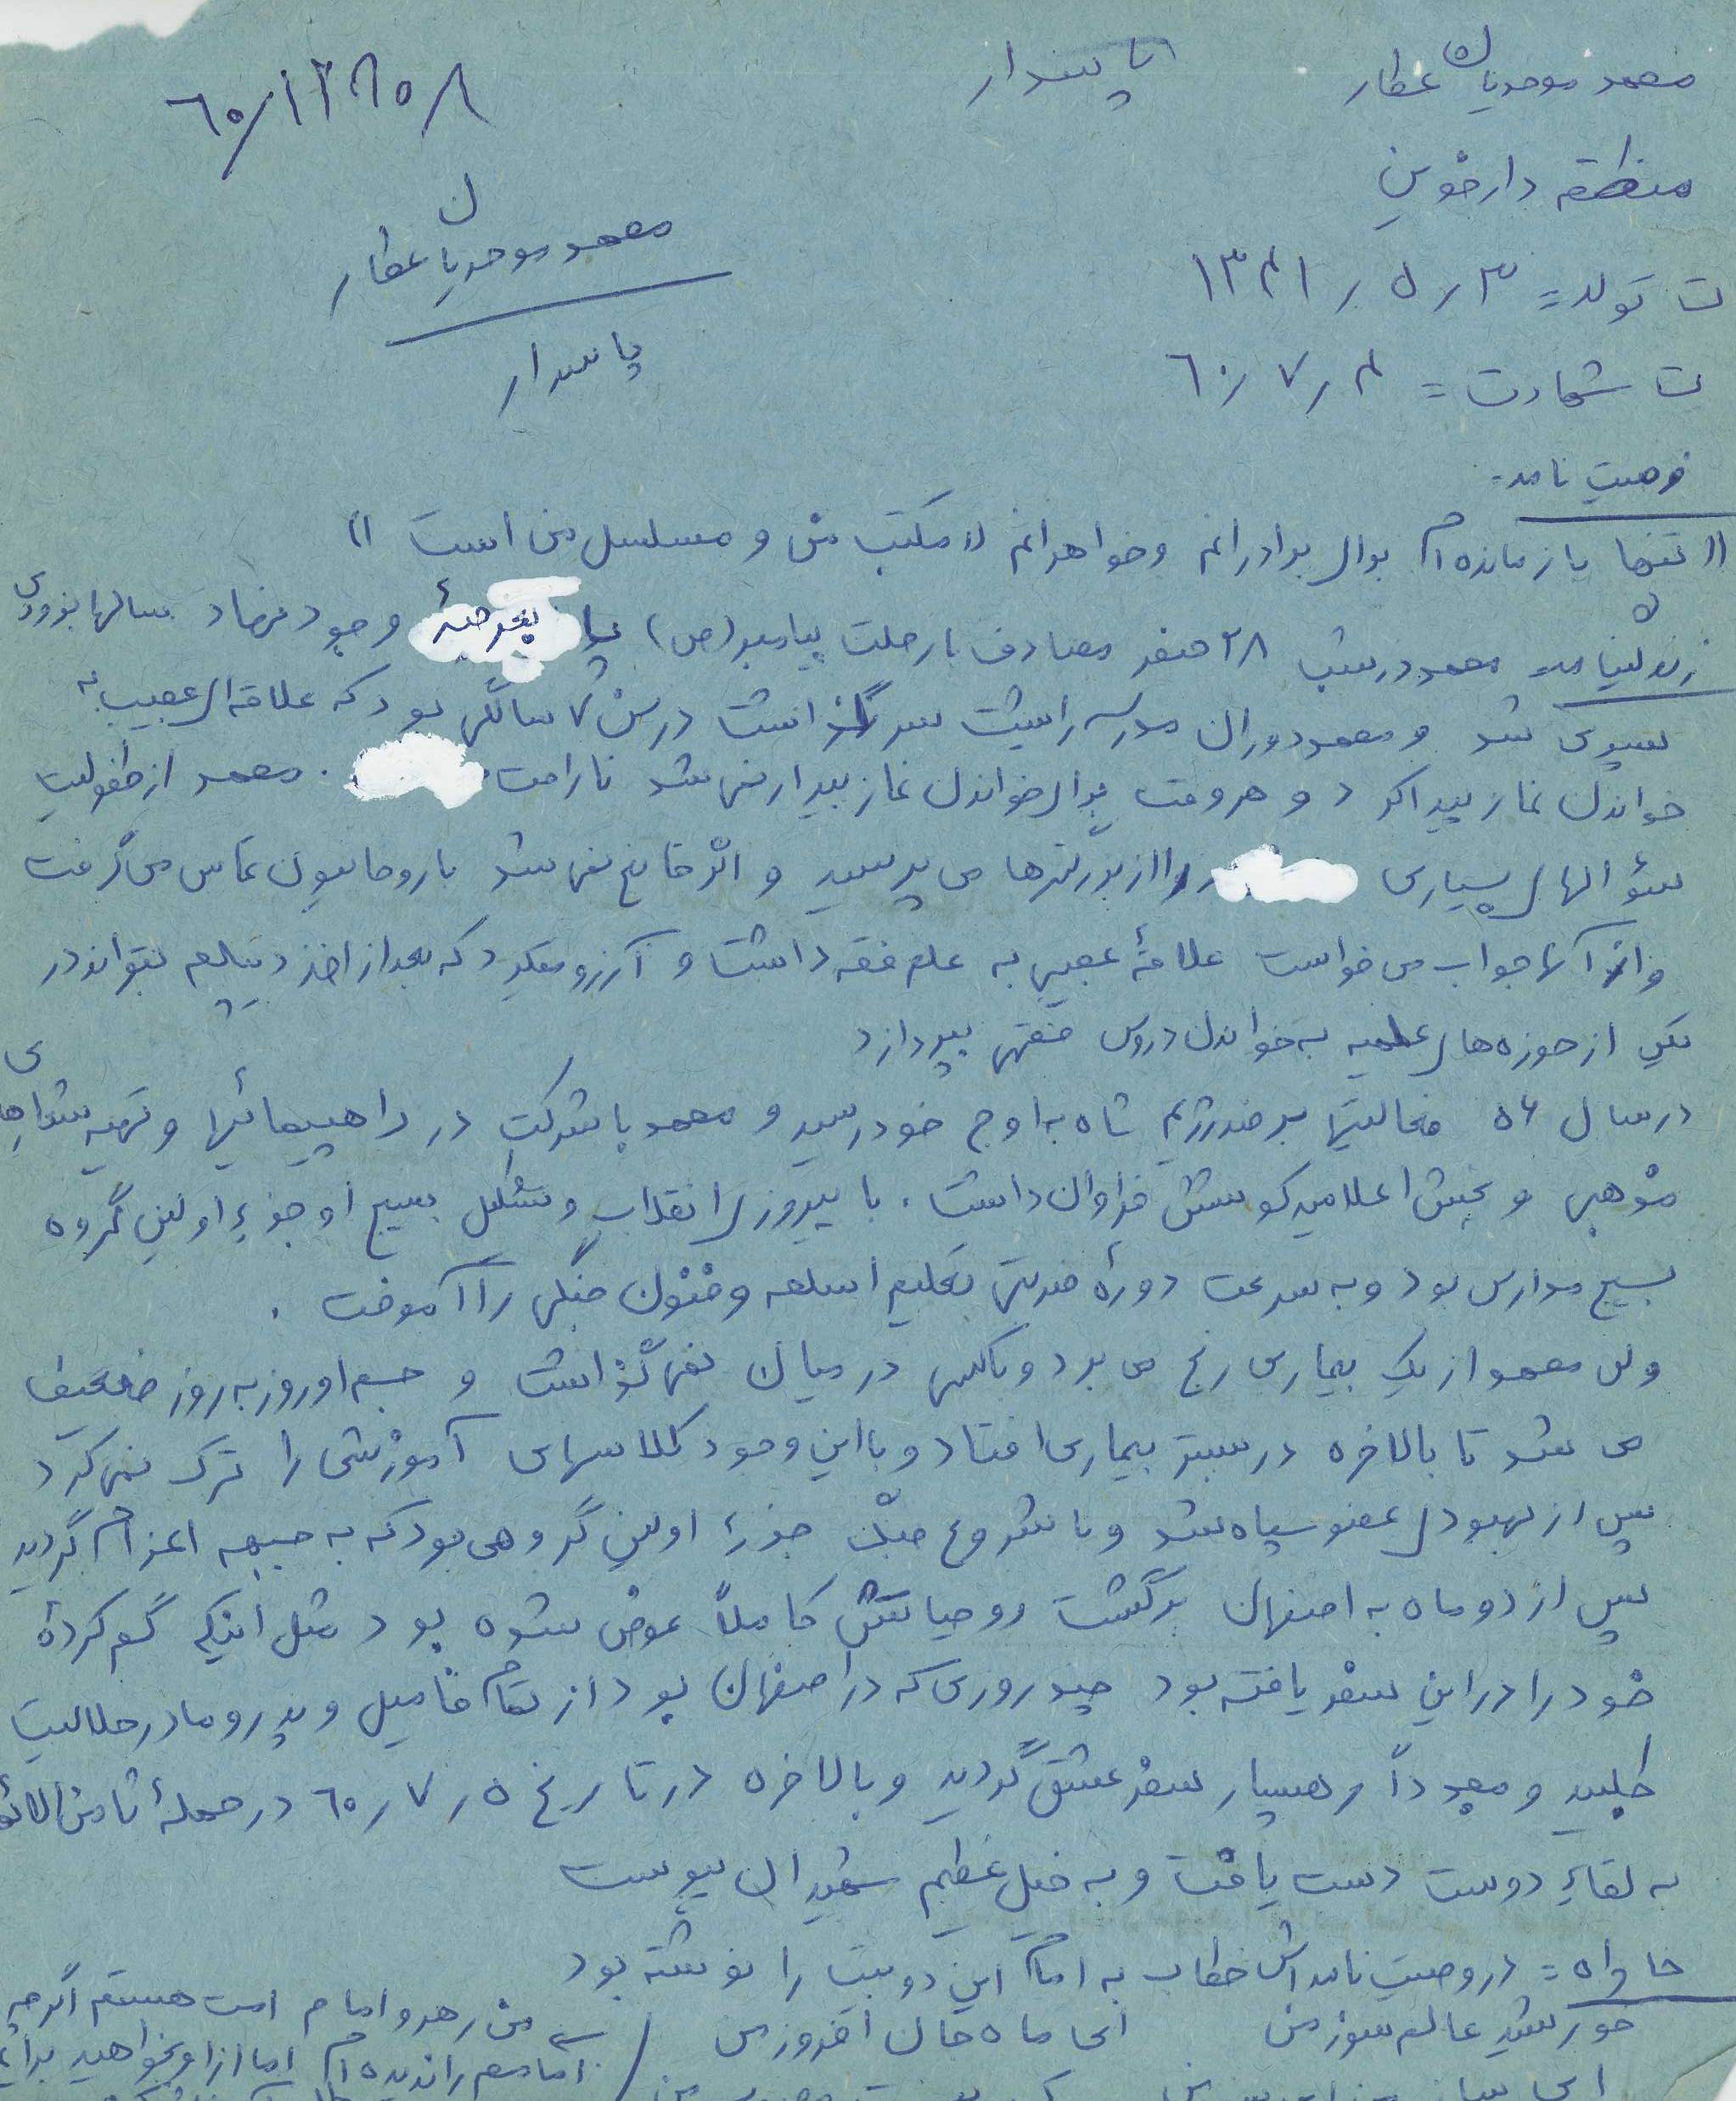 محمد موحدیان عطار
پاسدار
منطقه دارخوین
محمد موحدیان عطار
پاسدار
ت تولد = ۳ ر ۵ ر ۱۳۴۱
ت شهادت = ۴ ر ۷ ر ٦۰
وصیت نامه =
«تنها بازمانده ام برای برادرانم و خواهرانم «مکتب من و مسلسل من است»
زندگینامه محمد در شب ۲۸ صفر مصادف با رحلت پیامبر (ص) پا بعرصهٔ وجود نهاد سالها بزودی
سپری شد و محمد دوران مدرسه را پشت سر گذاشت در سن ۷ سالگی بود که علاقه ای عجیب به
خواندن نماز پیدا کرد و هر وقت برای خواندن نماز بیدار نمی شد ناراحت . محمد از طفولیت
سؤالهای بسیاری را از بزرگترها می پرسید و اگر قانع نمی شد با روحانیون تماس می گرفت
و از آنها جواب می خواست علاقهٔ عجیبی به علم فقه داشت و آرزو میکرد که بعد از اخذ دیپلم بتواند در
یکی از حوزه های علمیه به خواندن دروس فقهی بپردازد
در سال ۵۶ فعالیتها بر ضد رژیم شاه به اوج خود رسید و محمد با شرکت در راهپیمائیها و تهیه شعارهای
مذهبی و پخش اعلامیه کوشش فراوان داشت . با پیروزی انقلاب و تشکیل بسیج او جزء اولین گروه
بسیج مدارس بود و به سرعت دورهٔ تعلیم اسلحه و فنون جنگی را آموخت .
ولی محمد از یک بیماری رنج می برد و با کسی در میان نمی گذاشت و جسم او روز به روز ضعیف
می شد تا بالاخره در بستر بیماری افتاد و با این وجود کلاسهای آموزشی را ترک نمی کرد
پس از بهبودی عضو سپاه شد و با شروع جنگ جزء اولین گروهی بود که به جبهه اعزام گردید
پس از دو ماه به اصفهان برگشت روحیاتش کاملاً عوض شده بود مثل اینکه گم کردهٔ
خود را در این سفر یافته بود چند روزی که در اصفهان بود از تمام فامیل و پدر و مادر حلالیت
طلبید و مجدداً رهسپار سفر عشق گردید و بالاخره در تاریخ ۵ ر ۷ ر ٦۰ در حملهٔ ثامن الائمه
به لقاء دوست دست یافت و به خیل عظیم شهیدان پیوست
در وصیت نامه اش خطاب به امام این دو بیت را نوشته بود
خورشید عالم سوز من ای ماه جان افروز من
من رهرو امام امت هستم اگر چه
امامم را ندیده ام اما از او بخواهید برای